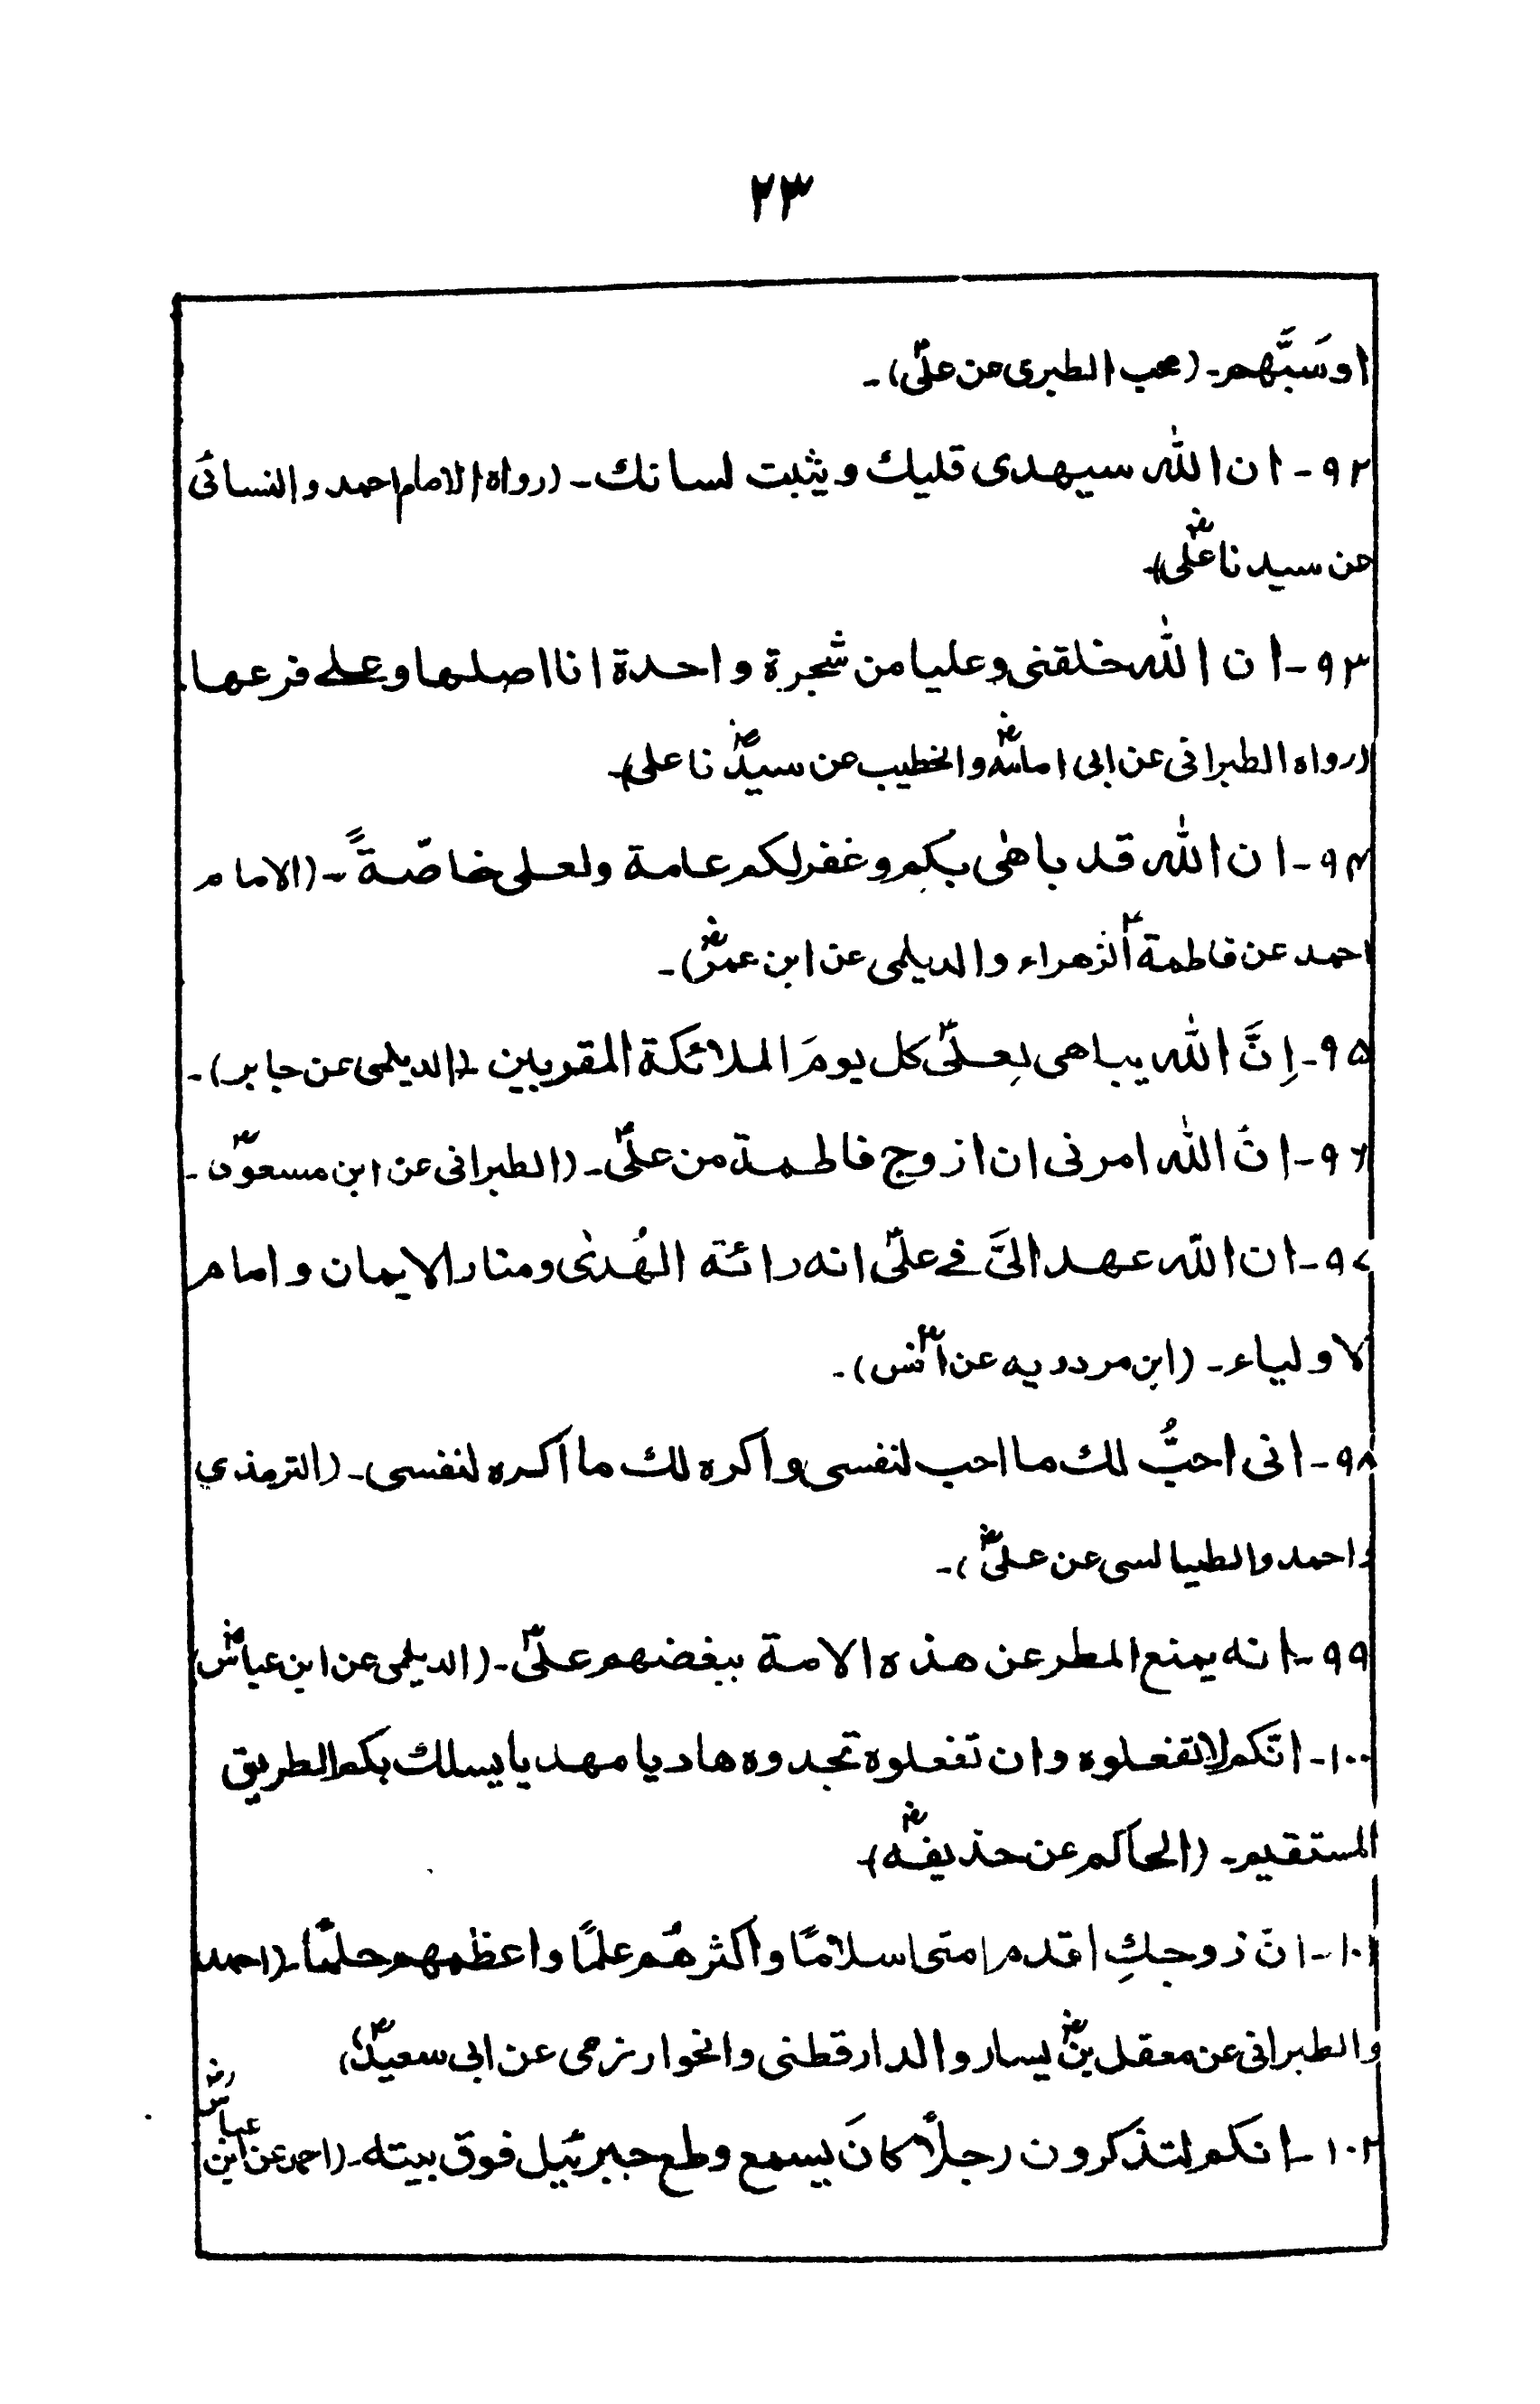 ۲۳
اوسَبَّهم۔ (محب الطبری عن علیؓ)۔
۹۲۔ ان الله سیهدی قلبك ویثبت لسانك۔ (رواه الامام احمد والنسائی
عن سیدنا علیؓ)۔
۹۳۔ ان الله خلقنی وعلیا من شجرة واحدة انا اصلها وعلی فرعها۔
(رواه الطبرانی عن ابی امامةؓ والخطیب عن سیدؓنا علی)۔
۹۴۔ ان الله قد باهٰی بکم وغفرلکم عامة ولعلی خاصّةً۔ (الامام
احمد عن فاطمةؓ الزهراء والدیلمی عن ابن عمرؓ)۔
۹۵۔ اِنَّ الله یباهی بعلیؓ کل یومَ الملائکة المقربین۔ (الدیلمی عن جابر)۔
۹۶۔ انَ الله امرنی ان ازوج فاطمة من علیؓ۔ (الطبرانی عن ابن مسعودؓ)۔
۹۷۔ ان اللّه عهد الیَّ فی علیؓ انه رائة الهُدیٰ ومنار الایمان وامام
الاولیاء۔ (ابن مردویه عن انسؓ)۔
۹۸۔ انی احبُّ لك ما احب لنفسی واکره لك ما اکره لنفسی۔ (الترمذی
واحمد والطیالسی عن علیؓ)۔
۹۹۔ انه یمنع المطر عن هذه الامة ببغضهم علیؓ۔ (الدیلمی عن ابن عباسؓ)
۱۰۰۔ انّکم لا تفعلوه وان تفعلوه تجدوه هادیا مهدیا یسلك بکم الطریق
المستقیم۔ (الحاکم عن حذیفهؓ)۔
۱۰۱۔ انَ زوجكِ اقدم امتی اسلامًا واکثرهُم علمًا واعظمهم حلمًا۔ (احمد
والطبرانی عن معقل بنؓ یسار والدارقطنی والخوارزمی عن ابی سعیدؓ)
۱۰۲۔ انکم لتذکرون رجلاً کانَ یسمع وطع جبرئیل فوق بیته۔ (احمد عن ابن عباسؓ